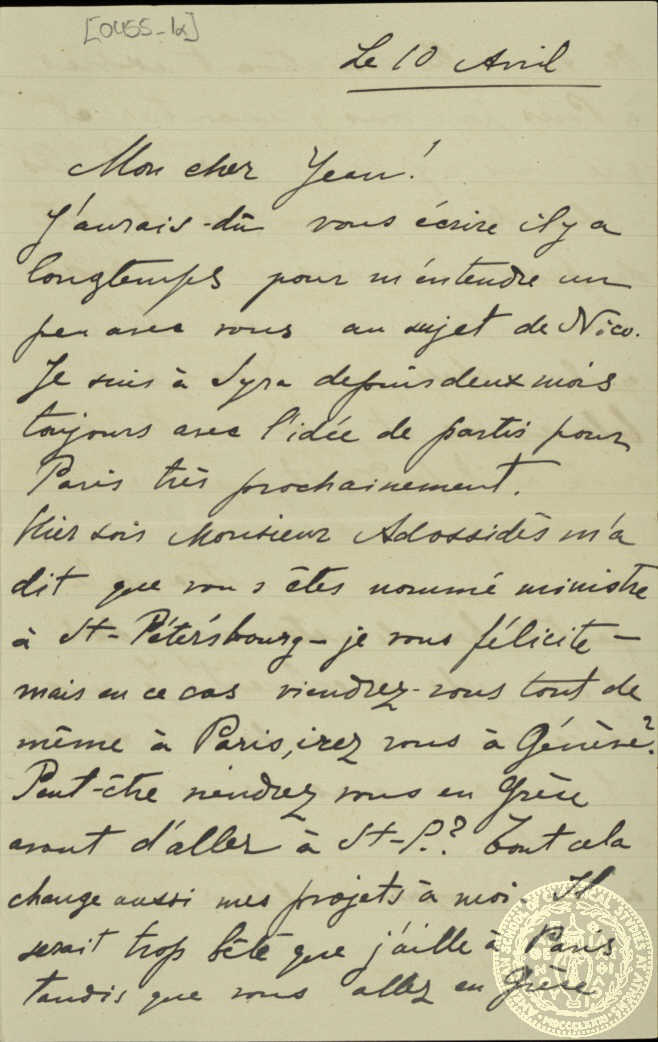 [0455-1α]
Le 10 Avril
Mon cher Jean!
J'aurais-dû vous écrire il y a
longtemps pour m'entendre un
peu avec vous au sujet de Nico.
Je suis à Syra depuis deux mois
toujours avec l'idée de partir pour
Paris très prochainement.
Hier soir Monsieur Adossidès m'a
dit que vous êtes nommé ministre
à St-Pétérsbourg - je vous félicite -
mais en ce cas viendrez-vous tout de
même à Paris, irez vous à Génève?
Peut-être viendrez vous en Grèce
avant d'aller à St-P.? Tout cela
change aussi mes projets à moi. Il
serait trop bête que j'aille à Paris
tandis que vous allez en Grèce
AMERICAN SCHOOL OF CLASSICAL STUDIES AT ATHENS
MDCCCLXXXI